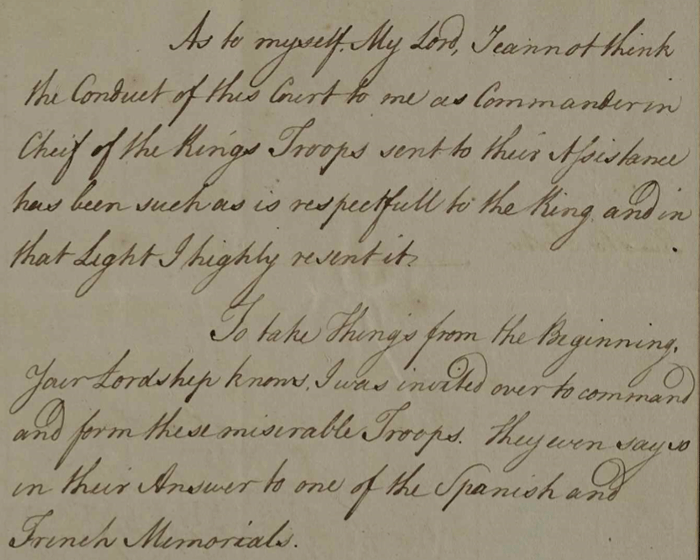 As to myself, My Lord, I cannot think
the Conduct of this Court to me as Commander in
Cheif of the King's Troops sent to their Assistance
has been such as is respectfull to the King, and in
that Light I highly resent it.
To take Things from the Beginning.
Your Lordship knows, I was invited over to command
and form these miserable Troops. They even say so
in their Answer to one of the Spanish and
French Memorials.